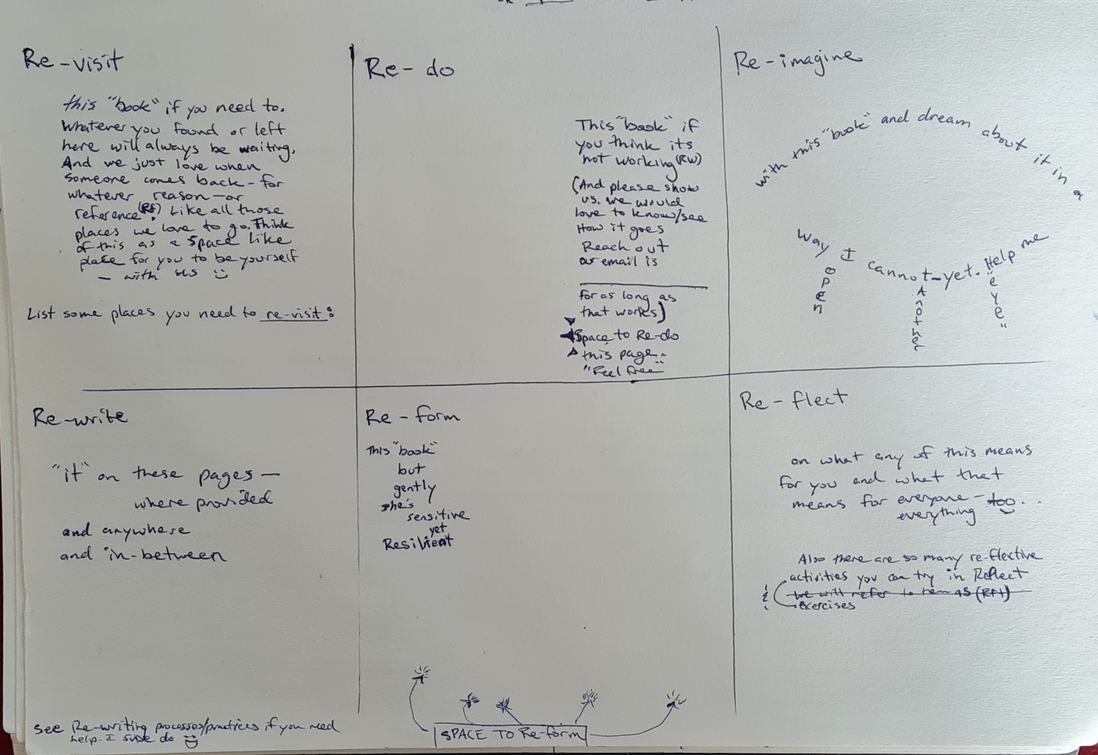 Re-visit
this "book" if you need to.
Whatever you found or left
here will always be waiting.
And we just love when
someone comes back - for
whatever reason - or
reference (RS). Like all those
places we love to go. Think
of this as a space like
place for you to be yourself
- with us
List some places you need to re-visit:
Re-do
This "book" if
you think its
not working (RW)
(And please show
us. we would
love to know/see
How it goes
Reach out
our email is
for as long as
that works)
Space to Re-do
this page..
"Feel free"
Re-imagine
with this "book" and dream about it in a
way I cannot-yet. Help me
open
Another
"eye"
Re-write
"it" on these pages —
where provided
and anywhere
and in-between
see Re-writing processes/practices if you need
help. I sure do
Re-form
this "book"
but
gently
she's
sensitive
yet
Resilient
SPACE TO Re-form
Re-flect
on what any of this means
for you and what that
means for everyone - too...
everything
Also there are so many re-flective
activities you can try in Reflect
we will refer to them as (Rft)
exercises